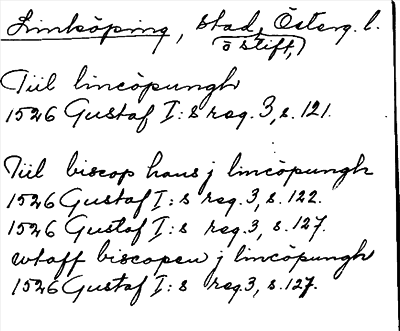 Linköping, stad, Österg. l.
o stift,)
Tiil lincöpungh
1526 Gustaf I:s reg. 3, s. 121.
Tiil biscop hans j lincöpungh
1526 Gustaf I:s reg. 3, s. 122.
1526 Gustaf I:s reg. 3, s. 127.
wtaff biscopen j lincöpungh
1526 Gustaf I:s reg. 3, s. 127.